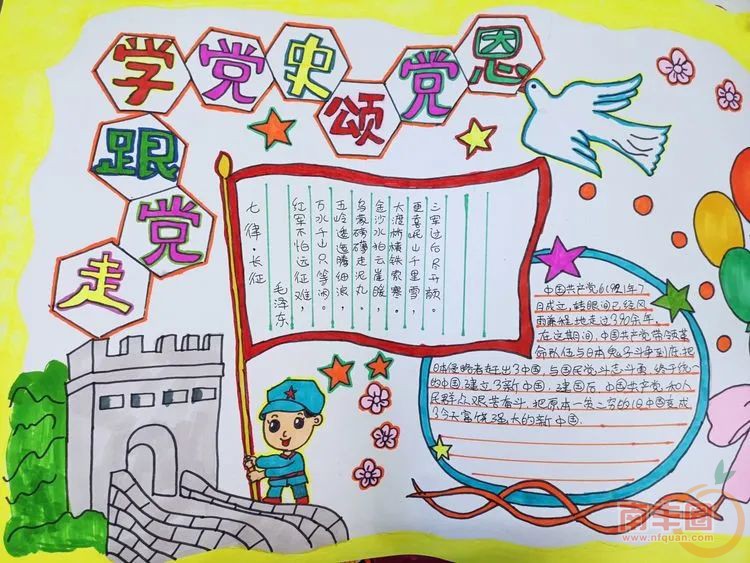 学党史颂党恩
跟党走
七律·长征
毛泽东
红军不怕远征难，
万水千山只等闲。
五岭逶迤腾细浪，
乌蒙磅礴走泥丸。
金沙水拍云崖暖，
大渡桥横铁索寒。
更喜岷山千里雪，
三军过后尽开颜。
中国共产党1921年7
月成立,转眼间已经风
雨兼程地走过了90余年.
在这期间,中国共产党带领革
命队伍与日本鬼子斗争到底,把
日本侵略者赶出了中国,与国民党斗志斗勇,终于统一
的中国,建立了新中国.建国后,中国共产党和人
民群众艰苦奋斗,把原本一穷二白的旧中国变成
了今天富饶强大的新中国.
南丰圈
www.nfquan.com